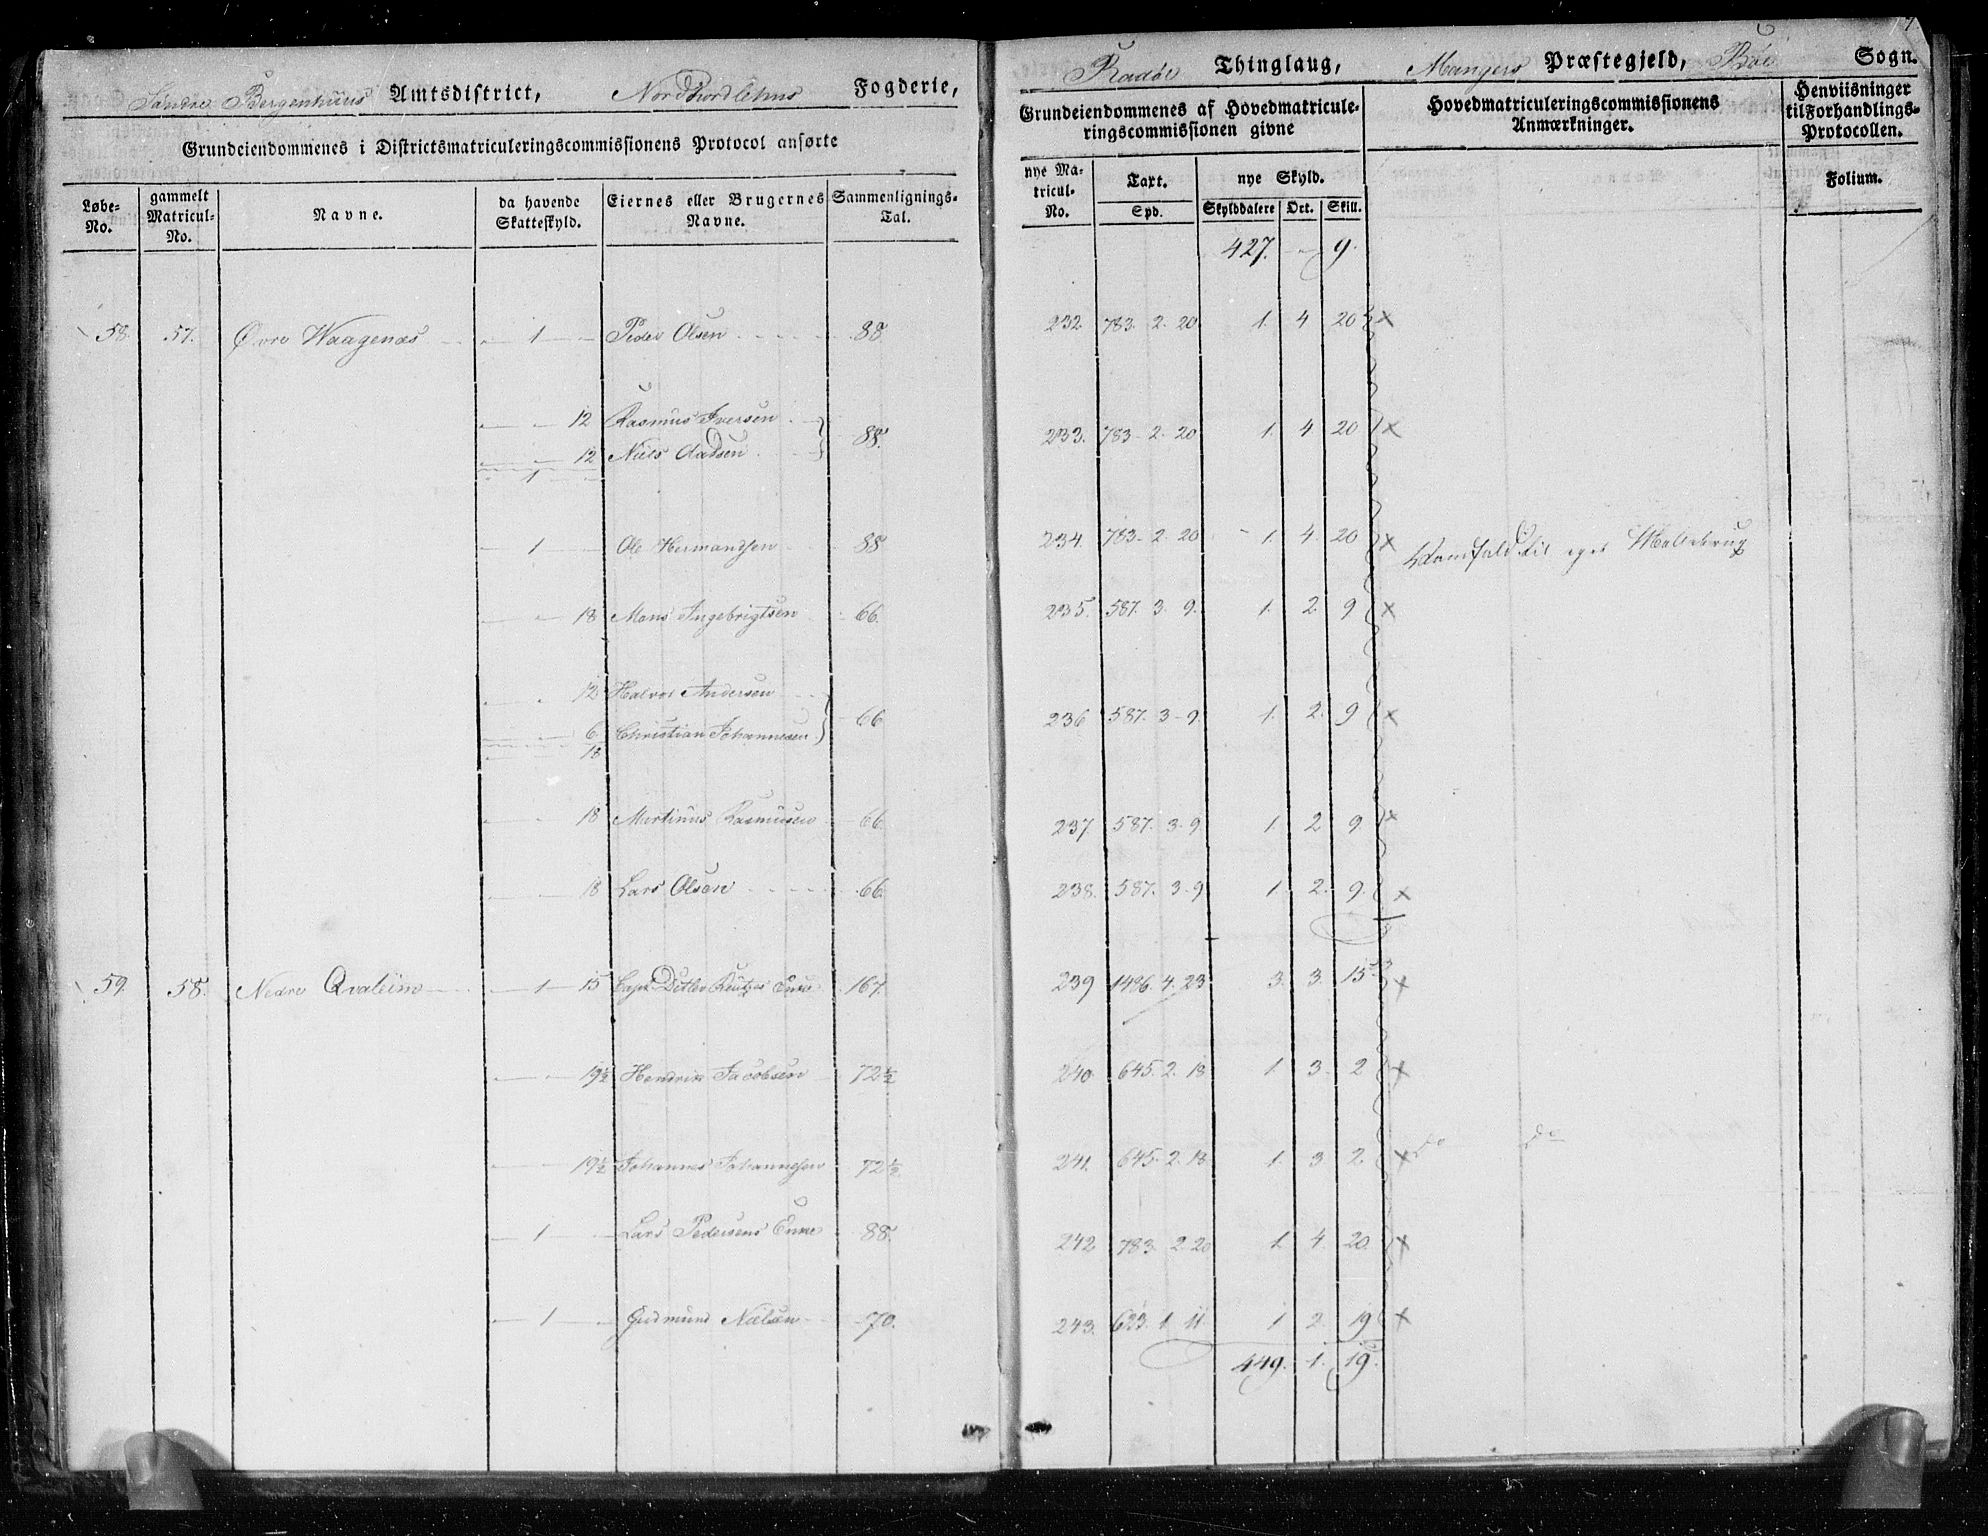 Søndre Bergenhuus Amtsdistrict, Nordhordlehns Fogderie,
Grundeiendommenes i Districtsmatriculeringscommissionens Protocol anførte
Løbe-No. gammelt Matricul-No. Navne. da havende Skatteskyld. Eiernes eller Brugernes Navne. Sammenlignings-Tal.
58. 57. Øvre Waagenæs 1 Peder Olsen 88.
12 Rasmus Iversen
12 Niels Aadsen 88.
1
1 Ole Hermandsen 88
18 Mons Ingebrigtsen 66.
12 Halvor Andersen
6 Christian Johannesen 66
18
18 Martinus Rasmusen 66
18 Lars Olsen 66.
59. 58. Nedre Qvaleim 1 15 Capt. Ditlev Enke 167.
19½ Hendrik Jacobsen 72½
19½ Johannes Johannesen 72½
1 Lars Pedersens Enke 88.
1 Gudmund Nielsen 70.
7
Radøe Thinglaug, Mangers Præstegjeld, Bøe Sogn.
Grundeiendommenes af Hovedmatriculeringscommissionen givne
Hovedmatriculeringscommissionens Anmærkninger.
Henviisninger til Forhandlings-Protocollen.
nye Matricul-No. Taxt. Spd. nye Skyld. Skylddalere Ort. Skill. Folium.
427. - 9.
232 783. 2. 20. 1. 4 20 x
233. 783. 2. 20 1. 4 20 x
234. 783. 2. 20 1. 4. 20 x Vandfald til eget Møllebrug
235. 587. 3. 9. 1. 2. 9 x
236 587. 3. 9. 1. 2. 9 x
237 587. 3. 9. 1. 2 9 x
238. 587. 3. 9 1. 2. 9. x
239 1486. 4. 23 3. 3. 15 x
240. 645. 2. 18 1. 3. 2 x
241. 645. 2. 18. 1. 3 2. x do do
242 783. 2. 20 1. 4. 20. x
243. 623. 1. 11 1 2. 19 x
449. 1. 19.